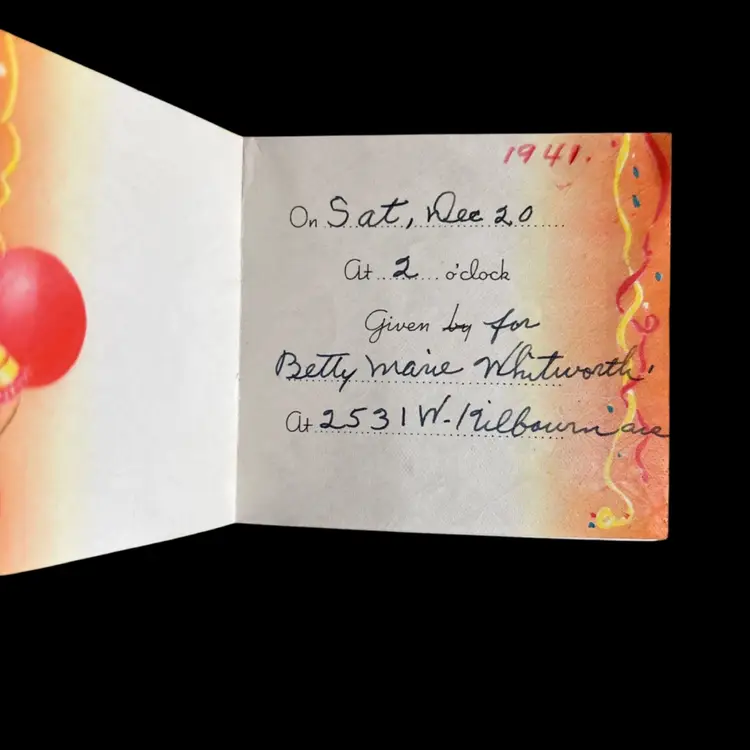 1941.
On Sat, Dec 20
At 2 o'clock
Given by for
Betty Marie Whitworth
At 2531 W. Kilbourn ave